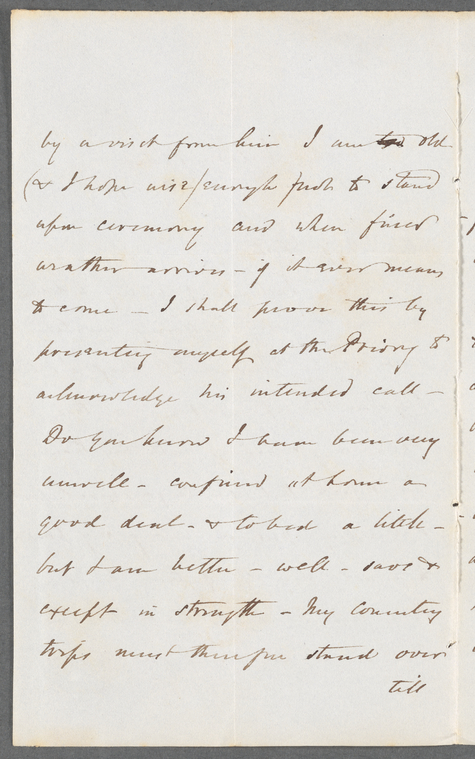 by a visit from him I am too old
(& I hope wise) enough not to stand
upon ceremony and when fixed
weather arrives – if it ever means
to come – I shall prove this by
presenting myself at the Priory to
acknowledge his intended call –
Do you know I have been very
unwell – confined at home a
good deal – & to bed a little –
but I am better – well – save &
except in strength – My country
trips must therefore stand over
till